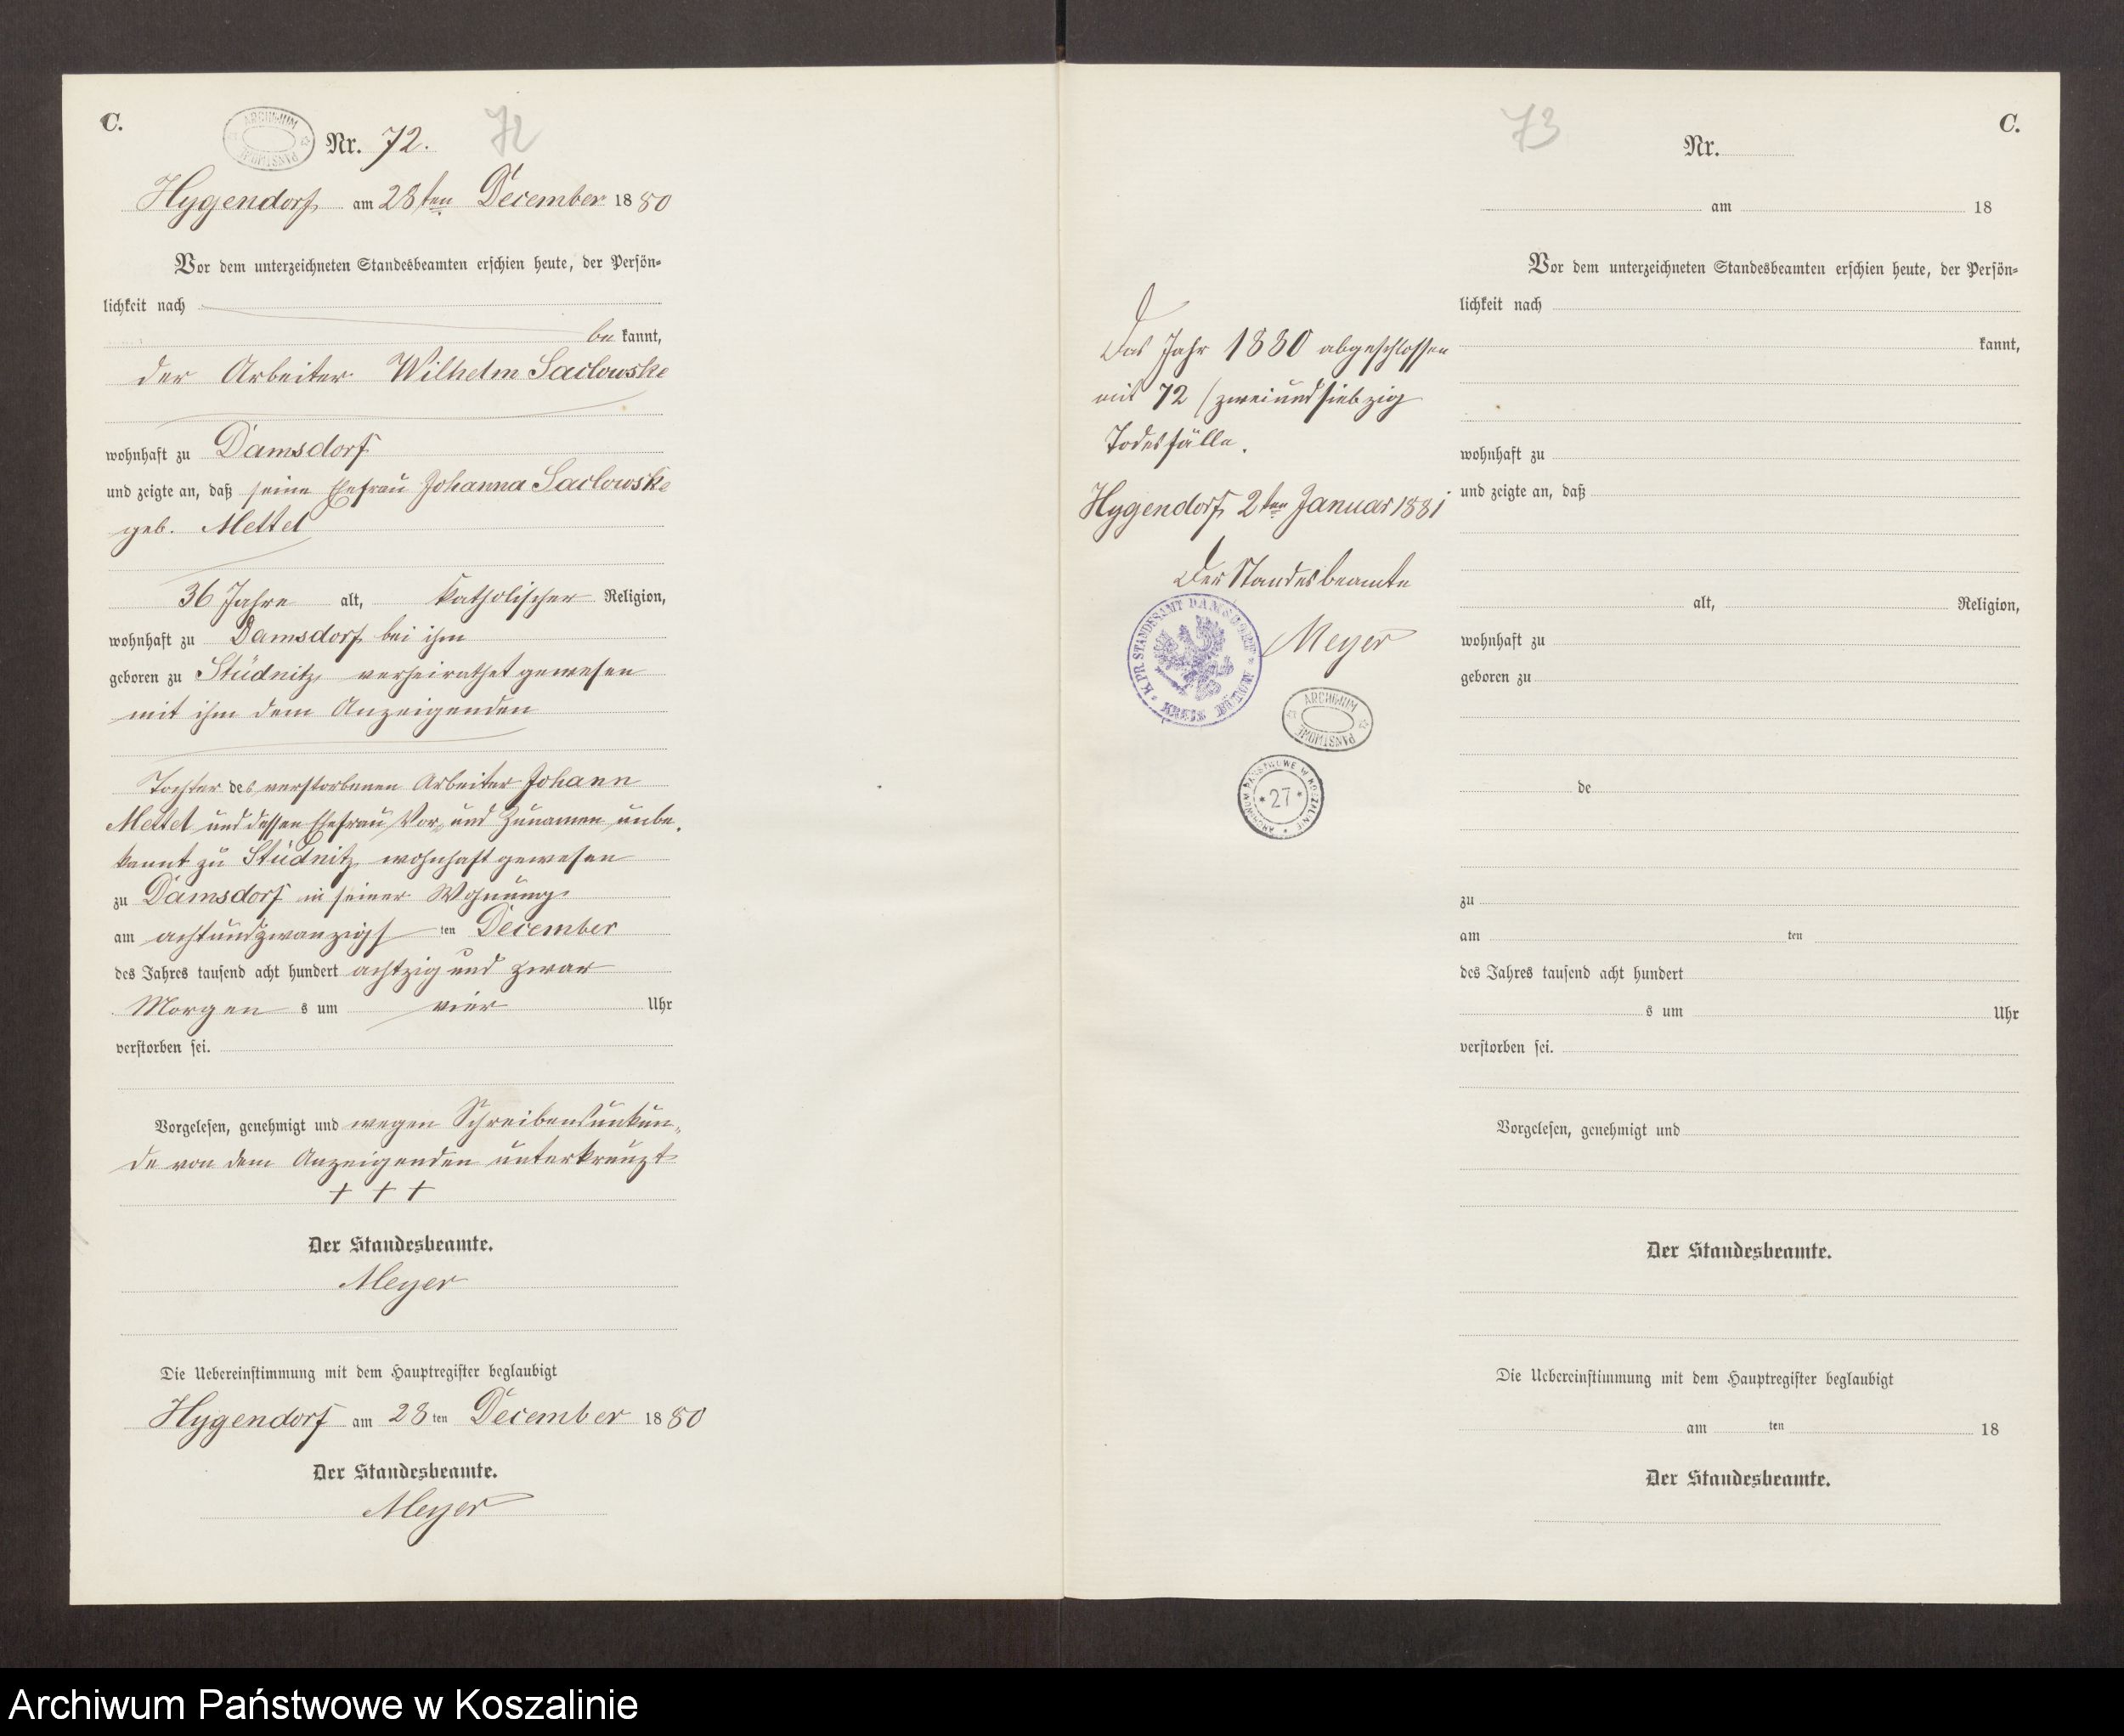 C.
Nr. 72.
72
Hygendorf, am 28ten December 1880
Vor dem unterzeichneten Standesbeamten erschien heute, der Persön-
lichkeit nach
be kannt,
der Arbeiter Wilhelm Saclowske
wohnhaft zu Damsdorf
und zeigte an, daß seine Ehefrau Johanna Saclowske
geb. Mettel
36 Jahre alt, katholischer Religion,
wohnhaft zu Damsdorf bei ihm
geboren zu Stüdnitz, verheirathet gewesen
mit ihm dem Anzeigenden
Tochter des verstorbenen Arbeiter Johann
Mettel und dessen Ehefrau, Vor- und Zunamen unbe-
kannt zu Stüdnitz wohnhaft gewesen
zu Damsdorf in seiner Wohnung
am achtundzwanzigs ten December
des Jahres tausend acht hundert achtzig und zwar
Morgen s um vier Uhr
verstorben sei.
Vorgelesen, genehmigt und wegen Schreibensunkun-
de von dem Anzeigenden unterkreuzt
+ + +
Der Standesbeamte.
Meyer
Die Uebereinstimmung mit dem Hauptregister beglaubigt
Hygendorf am 28 ten December 1880
Der Standesbeamte.
Meyer
Das Jahr 1880 abgeschlossen
mit 72 /zweiundsiebzig
Todesfälle.
Hygendorf, 2ten Januar 1881
Der Standesbeamte
Meyer
K. PR. STANDESAMT DAMSDORF
KREIS
ARCHIWUM
PAŃSTWOWE
ARCHIWUM PAŃSTWOWE W KOSZALINIE
* 27 *
73
C.
Nr.
am 18
Vor dem unterzeichneten Standesbeamten erschien heute, der Persön-
lichkeit nach
kannt,
wohnhaft zu
und zeigte an, daß
alt, Religion,
wohnhaft zu
geboren zu
de
zu
am ten
des Jahres tausend acht hundert
s um Uhr
verstorben sei.
Vorgelesen, genehmigt und
Der Standesbeamte.
Die Uebereinstimmung mit dem Hauptregister beglaubigt
am ten 18
Der Standesbeamte.
Archiwum Państwowe w Koszalinie